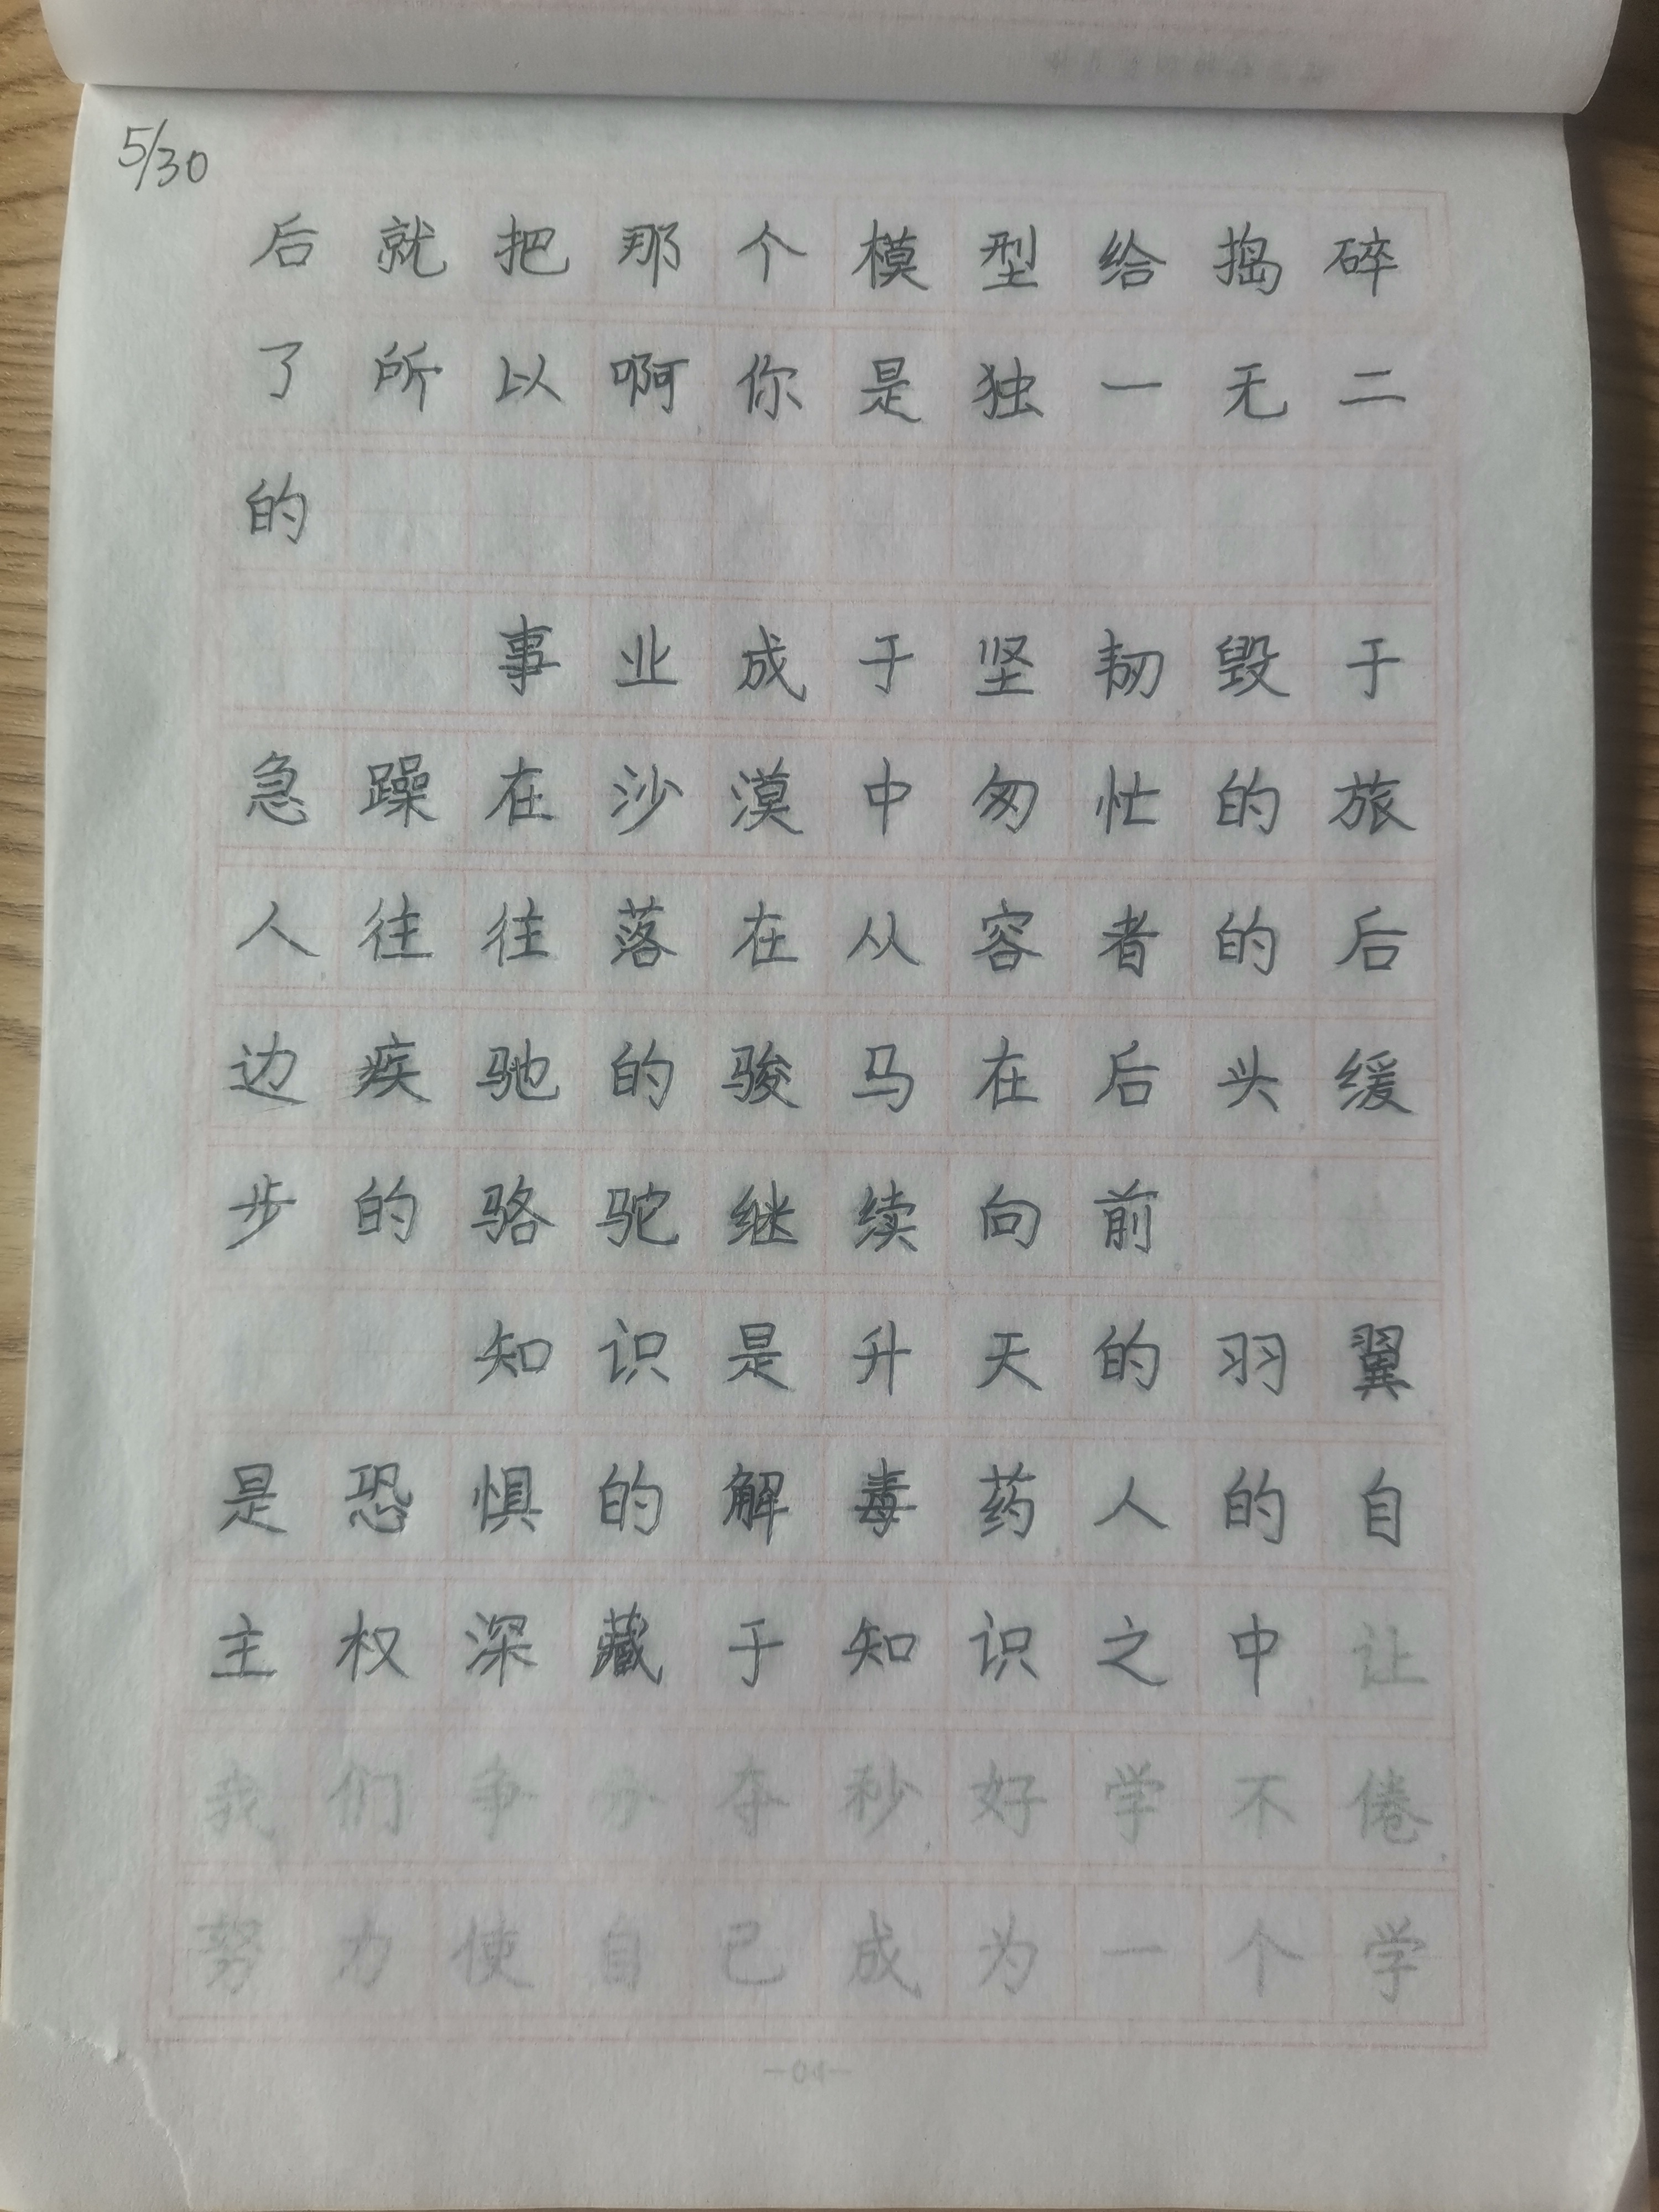 5/30
后就把那个模型给捣碎
了所以啊你是独一无二
的
事业成于坚韧毁于
急躁在沙漠中匆忙的旅
人往往落在从容者的后
边疾驰的骏马在后头缓
步的骆驼继续向前
知识是升天的羽翼
是恐惧的解毒药人的自
主权深藏于知识之中让
我们争分夺秒好学不倦
努力使自己成为一个学
—04—